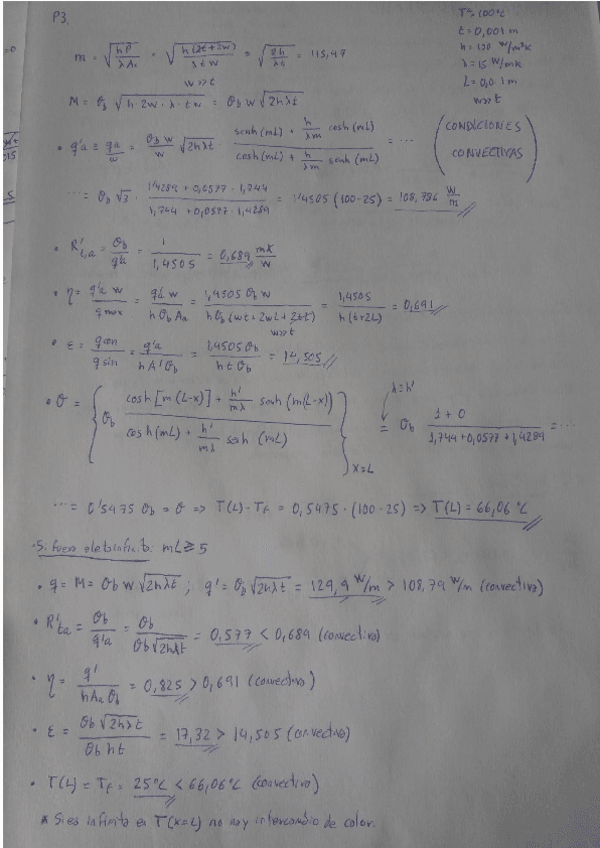 P3.
T=100°C
t=0,001 m
h=100 W/m²K
λ=15 W/mK
L=0,01 m
w>>t
m = √(hP/λAc) = √(h(2t+2w)/λtw) = √(2h/λt) = 115,47
w>>t
M = θb √(h·2w·λ·tw) = θb w √(2hλt)
(CONDICIONES CONVECTIVAS)
• q'a = qa/w = θb w/w √(2hλt) · (senh(mL) + h/λm cosh(mL))/(cosh(mL) + h/λm senh(mL)) = ...
... = θb √3 · (1'4289 + 0,0577 · 1,744)/(1,744 + 0,0577 · 1,4289) = 1'4505 (100-25) = 108,786 W/m
• R't,a = θb/q'a = 1/1,4505 = 0,689 mK/W
• η = q'a w/qmax = q'a w/hθbAa = 1,4505 θb w/hθb(wt+2wL+2Lt) = 1,4505/h(t+2L) = 0,691
w>>t
• ε = qcon/qsin = q'a/hA'θb = 1,4505 θb/htθb = 14,505
• θ = {θb (cosh[m(L-x)] + h'/mλ senh(m(L-x)))/(cosh(mL) + h'/mλ senh(mL))}x=L = θb (1+0)/(1,744+0,0577+1,4289) = ...
h=h'
... = 0'5475 θb = θ => T(L)-Tf = 0,5475·(100-25) => T(L) = 66,06 °C
· Si fuera aleta infinita: mL≥5
• q = M = θb w √(2hλt) ; q' = θb √(2hλt) = 129,9 W/m > 108,79 W/m (convectivo)
• R'ta = θb/q'a = θb/θb√(2hλt) = 0,577 < 0,689 (convectivo)
• η = q'/hAaθb = 0,825 > 0,691 (convectivo)
• ε = θb√(2hλt)/θb ht = 17,32 > 14,505 (convectivo)
• T(L) = Tf = 25°C < 66,06°C (convectivo)
* Si es infinita en T(x=L) no hay intercambio de calor.